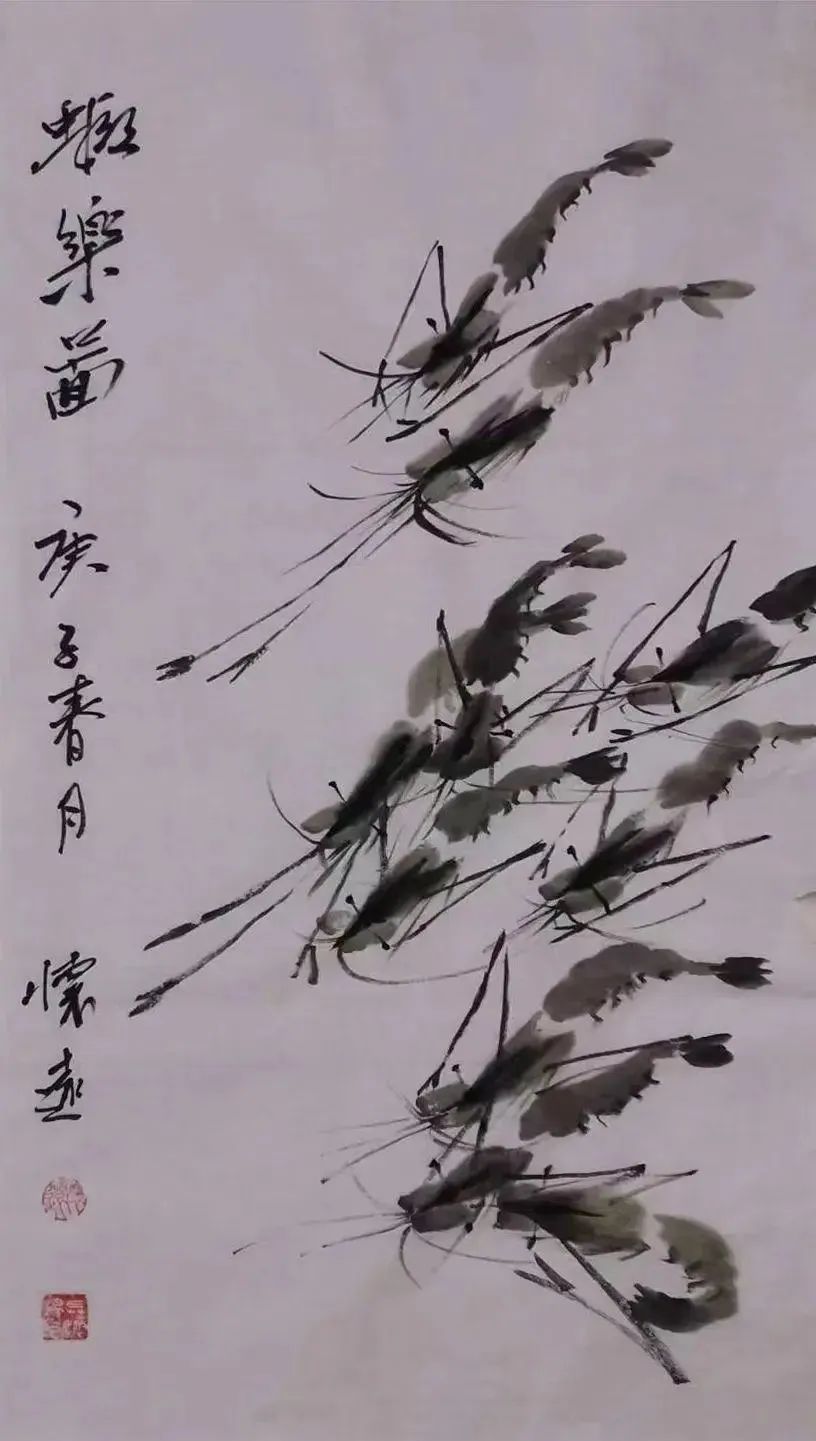 蝦樂圖 庚子春月 懷遠